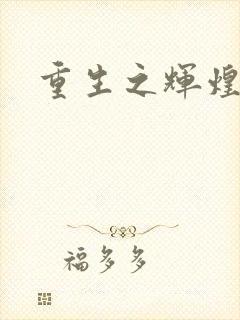 重生之辉煌
福多多